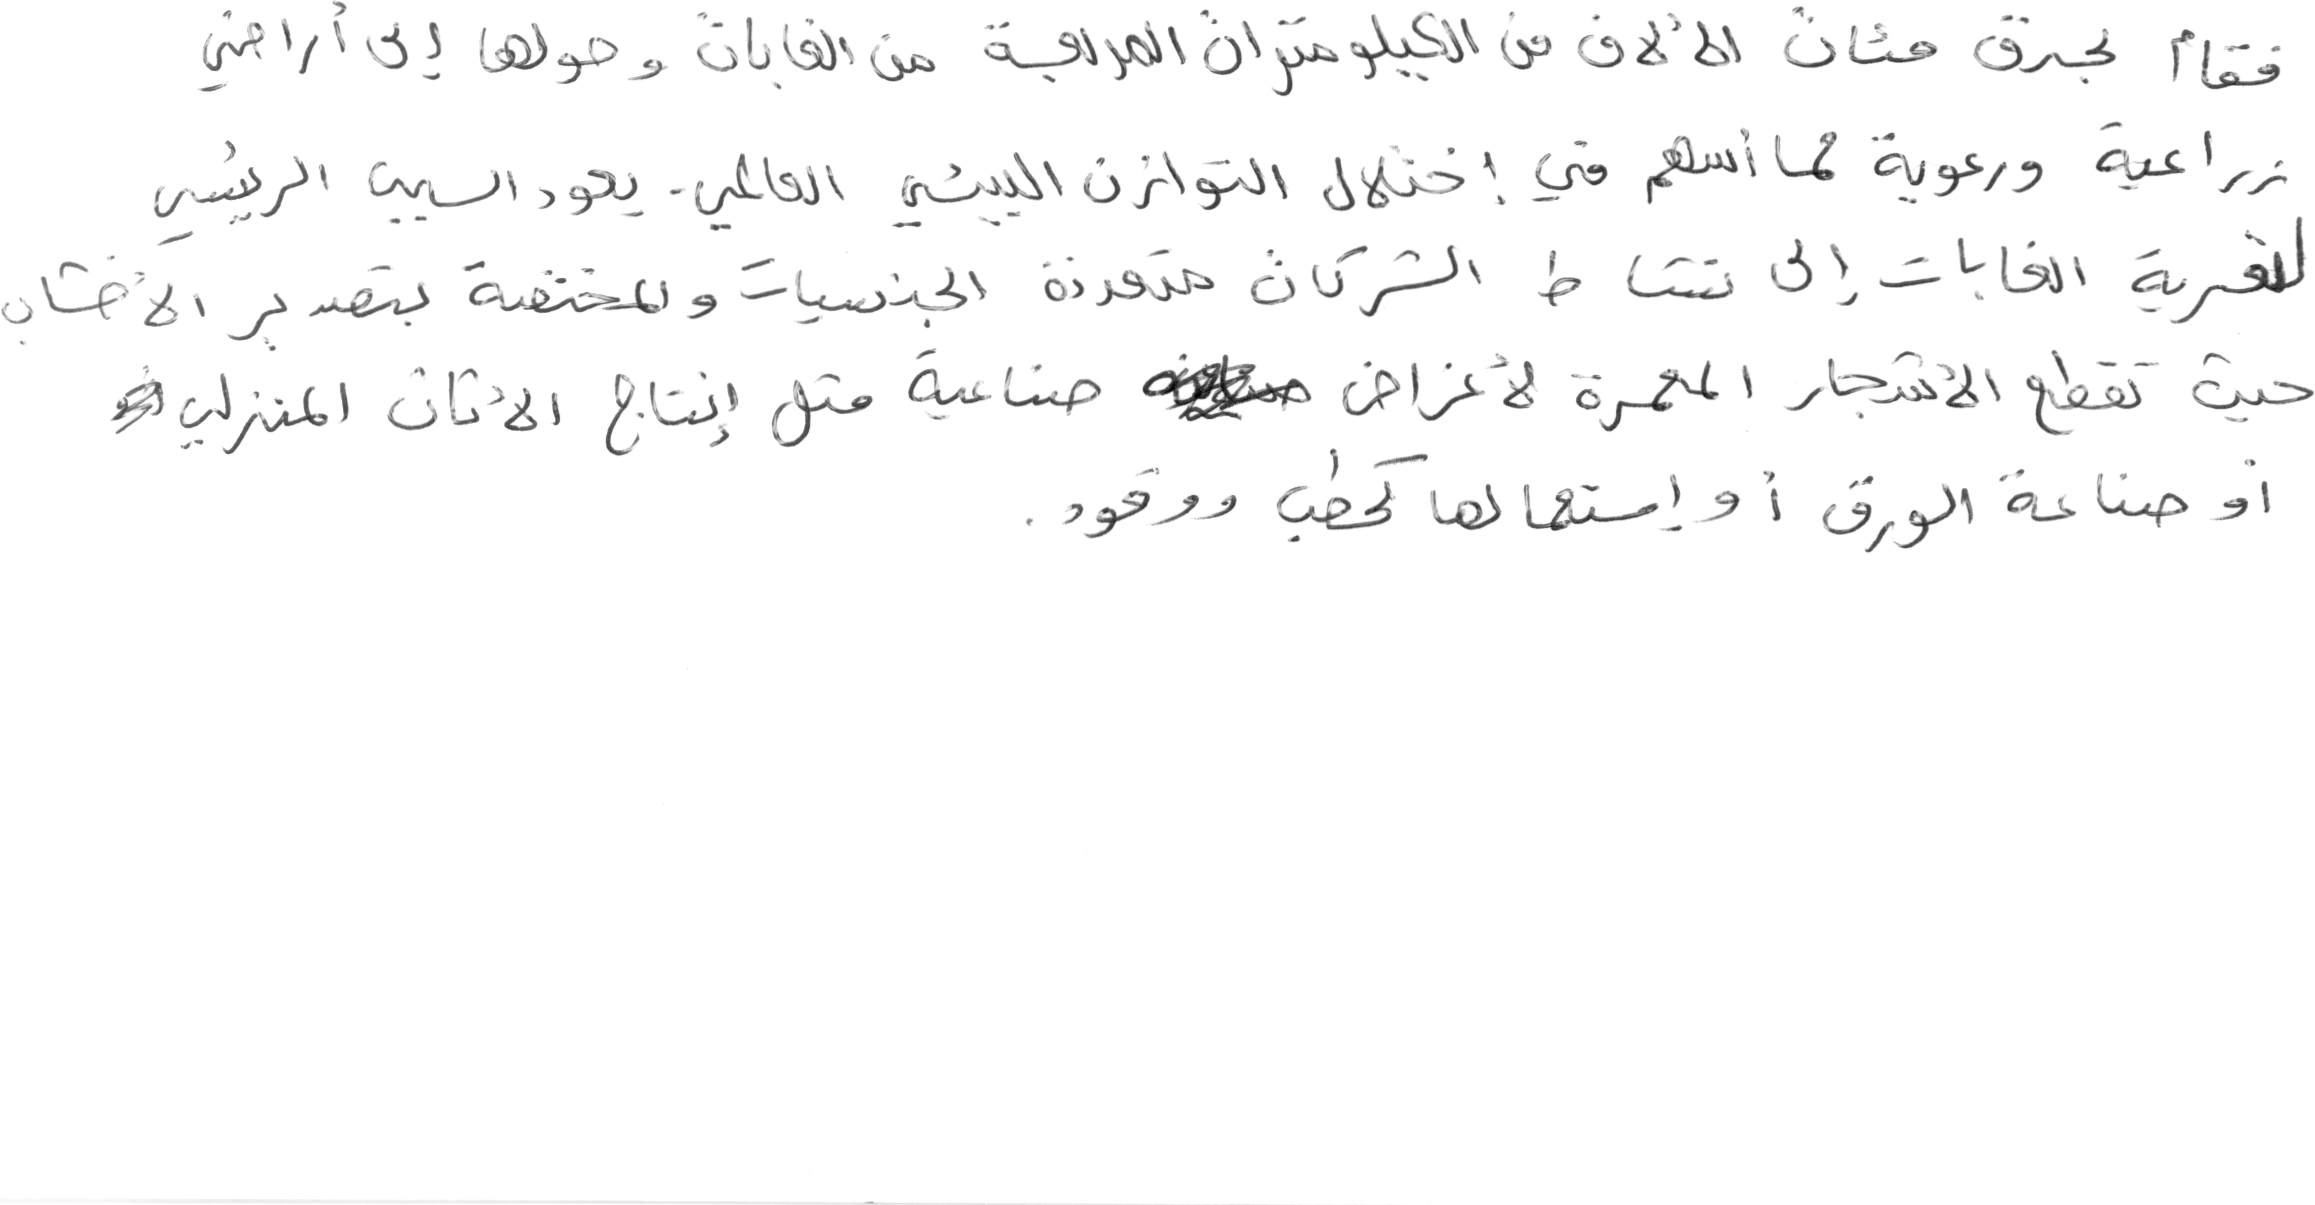 فقام بحرق مئات الألاف من الكيلومترات المربعة من الغابات وحولها إلى أراضي
زراعية ورعوية مما أسهم في إختلال التوازن البيئي العالمي. يعود السبب الرئيسي
لتعرية الغابات إلى نشاط الشركات متعددة الجنسيات والمختصة بتصدير الأخشاب
حيث تقطع الأشجار المعمرة لأغراض صناعية مثل إنتاج الأثاث المنزلي
أو صناعة الورق أو إستعمالها كحطب ووقود.